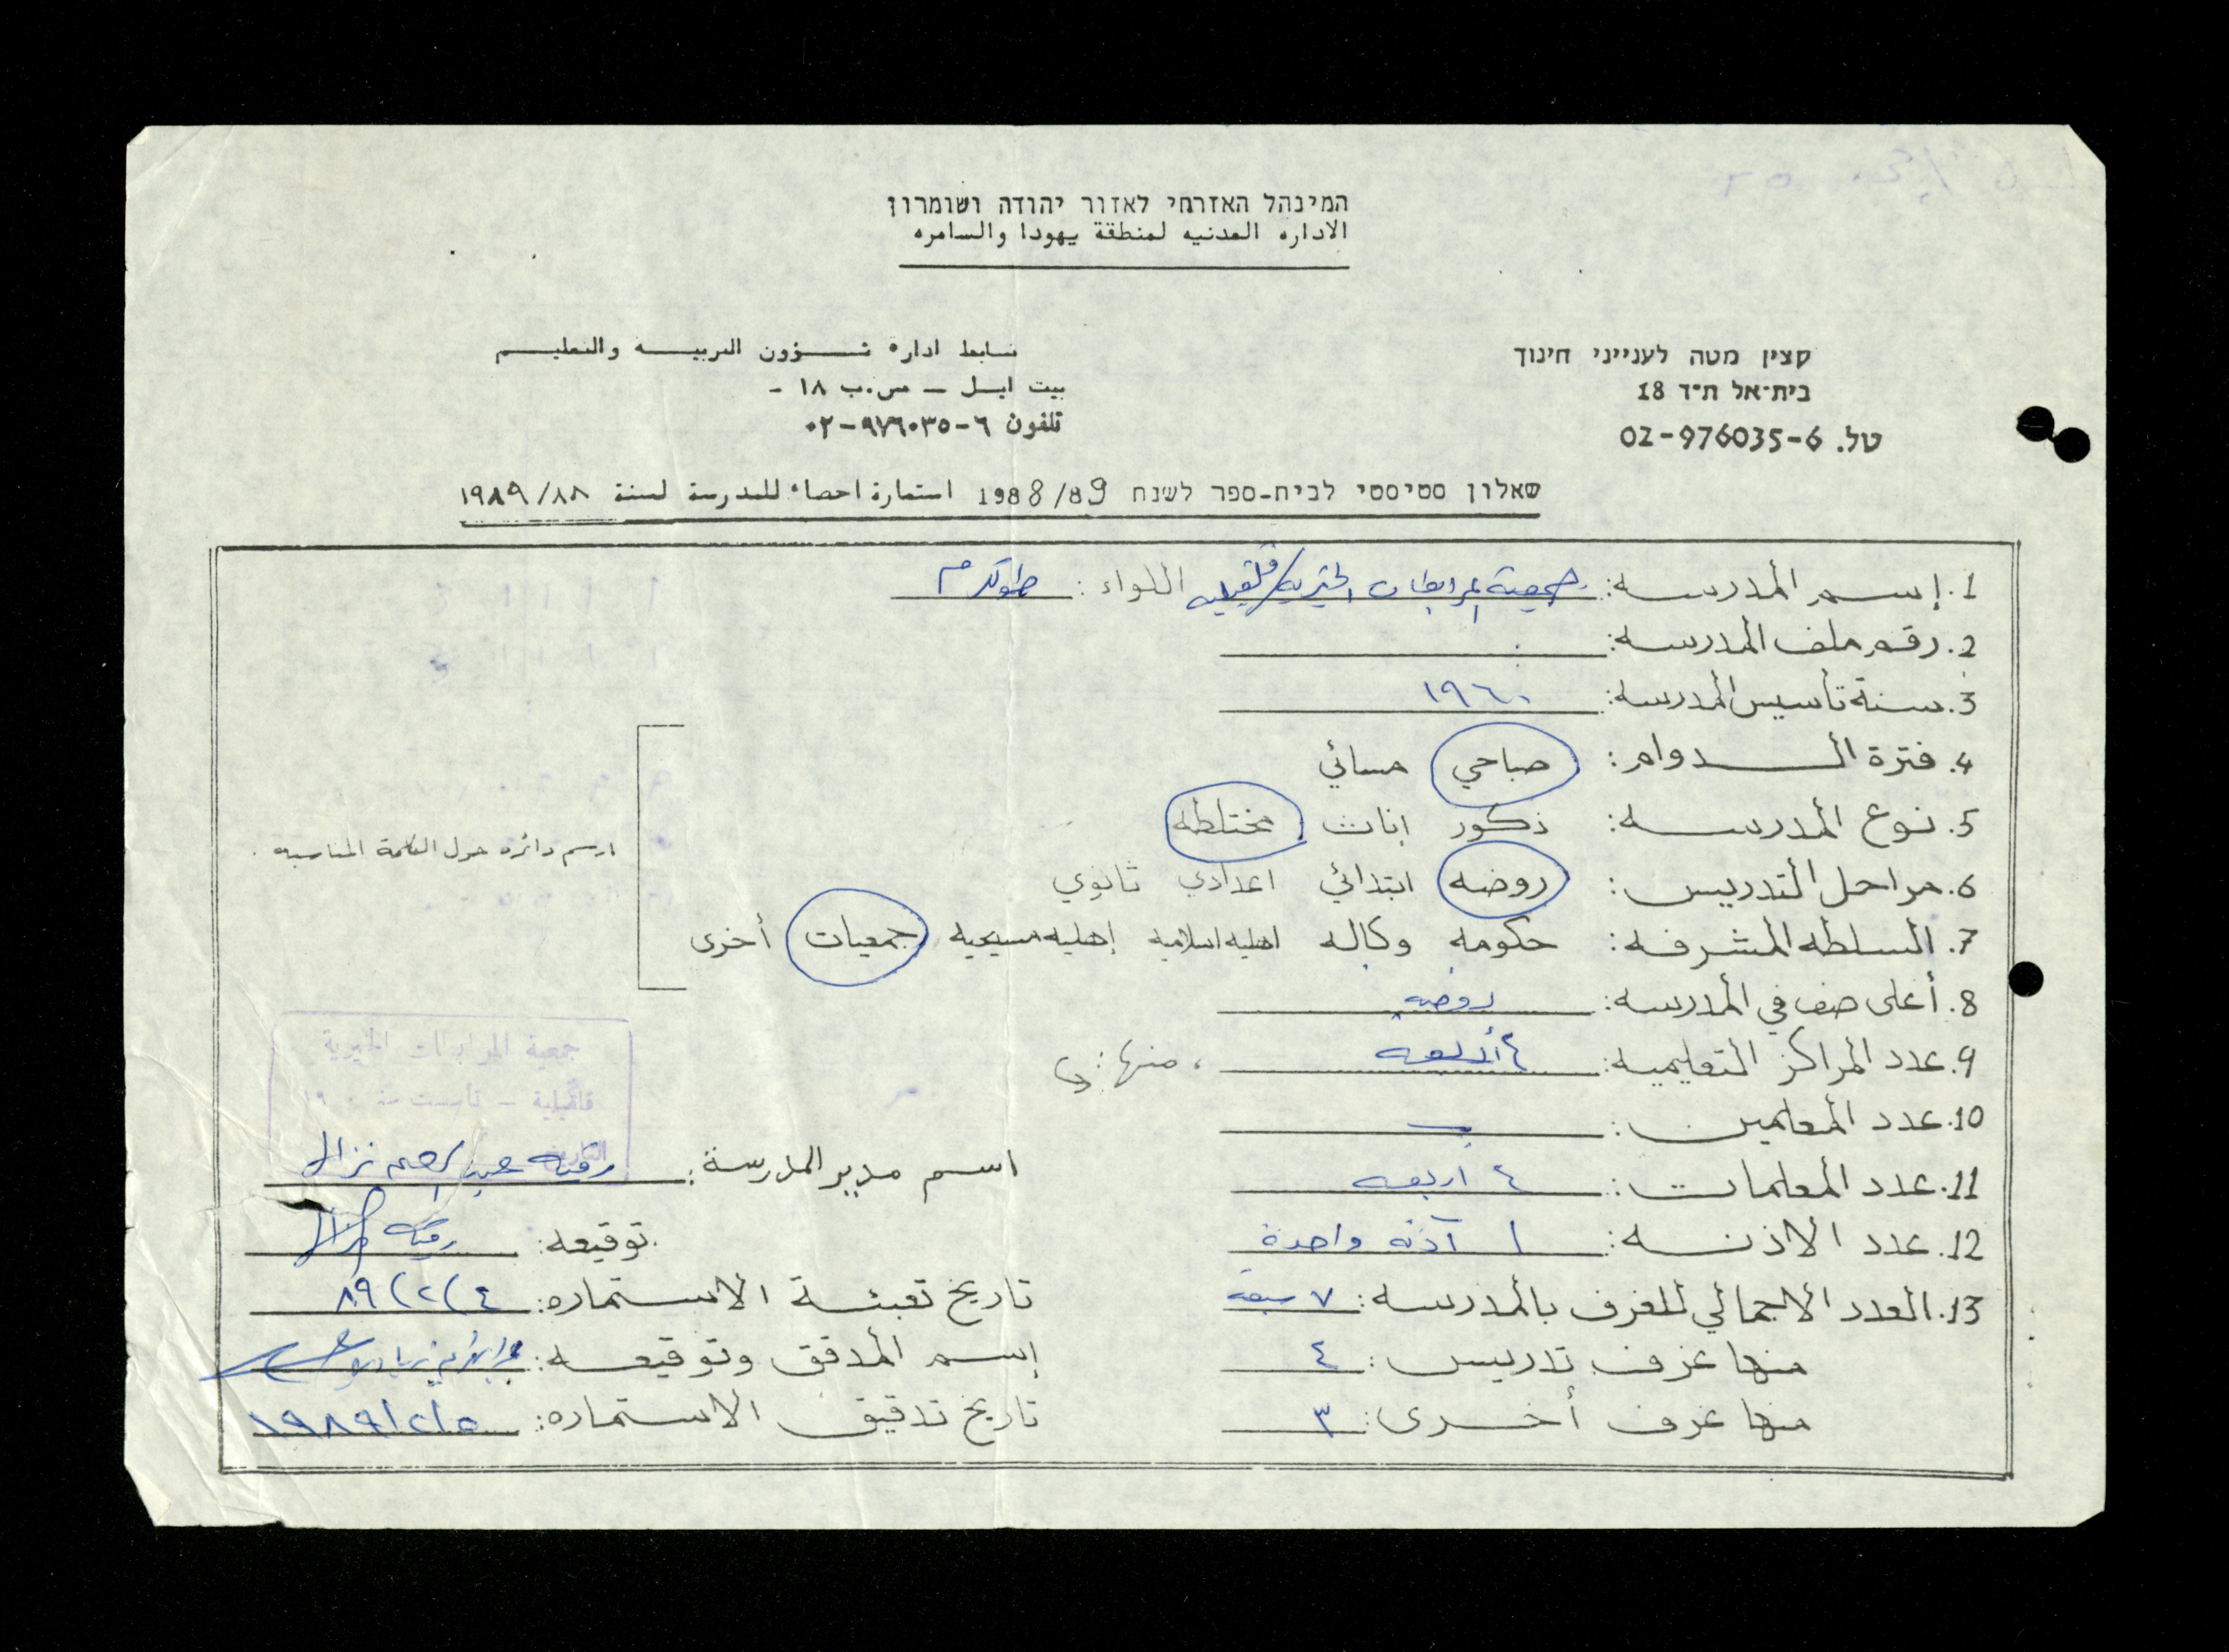 המינהל האזרחי לאזור יהודה ושומרון
الاداره المدنيه لمنطقة يهودا والسامره
קצין מטה לענייני חינוך
בית-אל ת"ד 18
טל. 02-976035-6
ضابط ادارة شـؤون التربيـه والتعليـم
بيت ايـل - ص.ب ١٨ -
تلفون ٦-٩٧٦٠٣٥-٠٢
שאלון סטיסטי לבית-ספר לשנת 1988/89 استمارة احصاء للمدرسة لسنة ١٩٨٩/٨٨
1. إسـم المدرسـه: جمعية المرابطات الخيريه/قلقيليه اللواء: طولكرم
2. رقم ملف المدرسـه:
3. سنة تأسيس المدرسه: ١٩٦٠
4. فترة الـدوام: صباحي مسائي
5. نوع المدرسـه: ذكور اناث مختلطه
6. مراحل التدريس: روضه ابتدائي اعدادي ثانوي
7. السلطه المشرفه: حكومه وكاله اهليه اسلاميه إهليه مسيحيه جمعيات أخرى
ارسم دائره حول الكلمة المناسبه.
8. أعلى صف في المدرسه: روضه
9. عدد المراكز التعليميه: ٤ أربعه، منها:
10. عدد المعلمين: -
11. عدد المعلمات: ٤ اربعه
12. عدد الاذنـه: ١ آذنه واحدة
13. العدد الاجمالي للغرف بالمدرسه: ٧ سبعة
منها غرف تدريس: ٤
منها غرف أخـرى: ٣
جمعية المرابطات الخيرية
قلقيلية - تأسست سنة ١٩٠
التاريخ
اسم مدير المدرسة: رقيه عبد الرحيم نزال
توقيعه: رقيه نزال
تاريخ تعبئـة الاستماره: ٤/٢/٨٩
إسـم المدقق وتوقيعـه:
تاريخ تدقيق الاستماره: ١٩٨٩/٢/٥